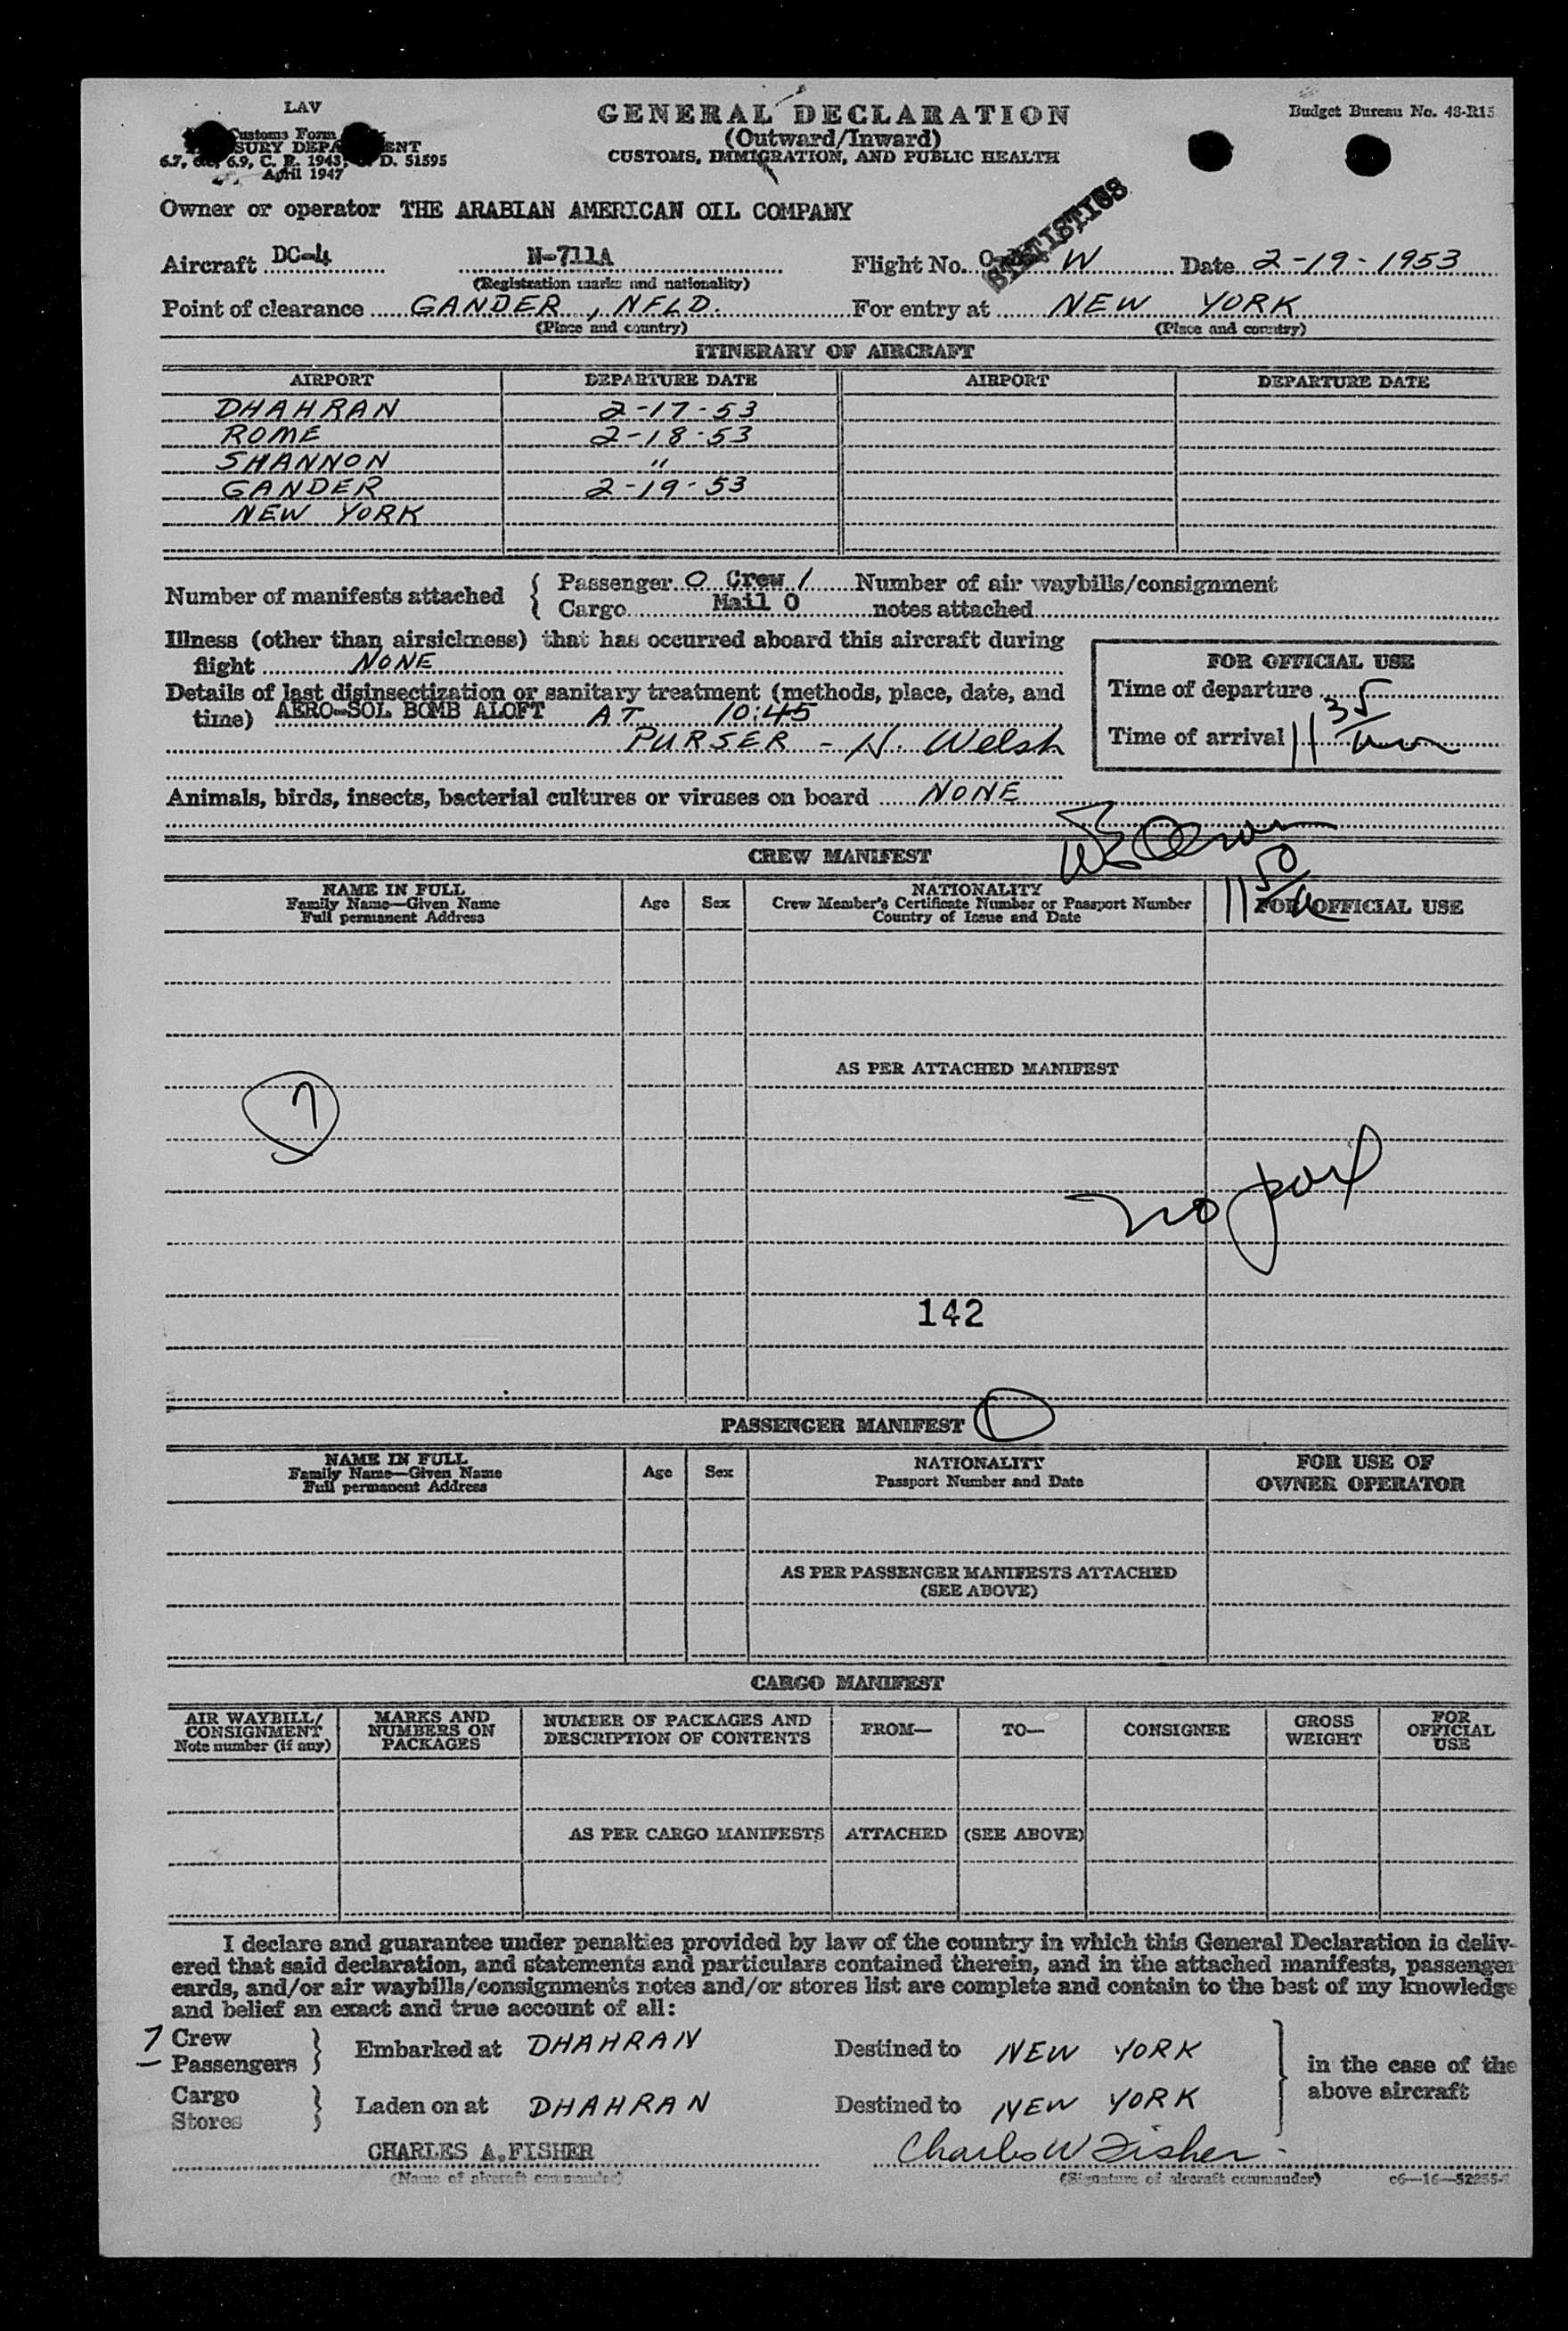 LAV
GENERAL DECLARATION
Budget Bureau No. 48-R15
(Outward/Inward)
CUSTOMS, IMMIGRATION, AND PUBLIC HEALTH
Customs Form
6.9, C. R. 1943, D. 51595
April 1947
Owner or operator THE ARABIAN AMERICAN OIL COMPANY
STATISTICS
Aircraft DC-4 N-711A Flight No. W Date 2-19-1953
(Registration marks and nationality)
Point of clearance GANDER, NFLD. For entry at NEW YORK
(Place and country) (Place and country)
ITINERARY OF AIRCRAFT
AIRPORT DEPARTURE DATE AIRPORT DEPARTURE DATE
DHAHRAN 2-17-53
ROME 2-18-53
SHANNON "
GANDER 2-19-53
NEW YORK
Number of manifests attached { Passenger 0 Crew 1 Number of air waybills/consignment
Cargo Mail 0 notes attached
Illness (other than airsickness) that has occurred aboard this aircraft during
flight NONE
Details of last disinsectization or sanitary treatment (methods, place, date, and
time) AERO-SOL BOMB ALOFT AT 10:45
PURSER - N. Welsh
FOR OFFICIAL USE
Time of departure
Time of arrival 11 35
Animals, birds, insects, bacterial cultures or viruses on board NONE
CREW MANIFEST
11 50
NAME IN FULL
Family Name—Given Name
Full permanent Address
Age Sex
NATIONALITY
Crew Member's Certificate Number or Passport Number
Country of Issue and Date
FOR OFFICIAL USE
AS PER ATTACHED MANIFEST
7
no
142
PASSENGER MANIFEST
NAME IN FULL
Family Name—Given Name
Full permanent Address
Age Sex
NATIONALITY
Passport Number and Date
FOR USE OF
OWNER OPERATOR
AS PER PASSENGER MANIFESTS ATTACHED
(SEE ABOVE)
CARGO MANIFEST
AIR WAYBILL/
CONSIGNMENT
Note number (if any)
MARKS AND
NUMBERS ON
PACKAGES
NUMBER OF PACKAGES AND
DESCRIPTION OF CONTENTS
FROM— TO— CONSIGNEE
GROSS
WEIGHT
FOR
OFFICIAL
USE
AS PER CARGO MANIFESTS ATTACHED (SEE ABOVE)
I declare and guarantee under penalties provided by law of the country in which this General Declaration is deliv-
ered that said declaration, and statements and particulars contained therein, and in the attached manifests, passenger
cards, and/or air waybills/consignments notes and/or stores list are complete and contain to the best of my knowledge
and belief an exact and true account of all:
7 Crew
— Passengers } Embarked at DHAHRAN Destined to NEW YORK
in the case of the
above aircraft
Cargo
Stores } Laden on at DHAHRAN Destined to NEW YORK
CHARLES A. FISHER Charles W Fisher
(Name of aircraft commander) (Signature of aircraft commander) c6—16—52255-1